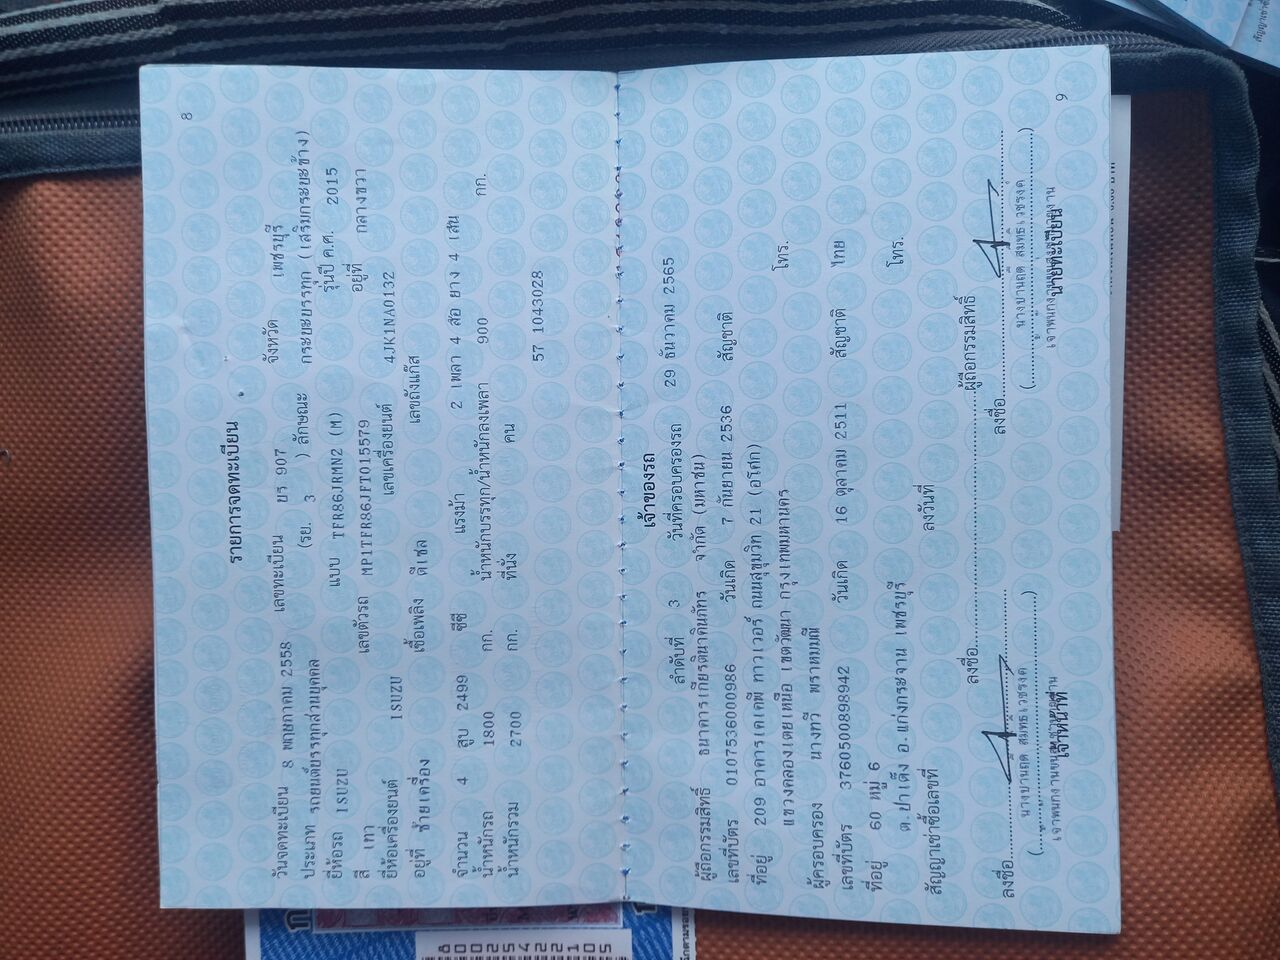 8
รายการจดทะเบียน
วันจดทะเบียน 8 พฤษภาคม 2558 เลขทะเบียน บร 907 จังหวัด เพชรบุรี
ประเภท รถยนต์บรรทุกส่วนบุคคล (รย. 3 ) ลักษณะ กระบะบรรทุก (เสริมกระบะข้าง)
ยี่ห้อรถ ISUZU แบบ TFR86JRMN2 (M) รุ่นปี ค.ศ. 2015
สี เทา เลขตัวรถ MP1TFR86JFT015579 อยู่ที่ กลางขวา
ยี่ห้อเครื่องยนต์ ISUZU เลขเครื่องยนต์ 4JK1NA0132
อยู่ที่ ซ้ายเครื่อง เชื้อเพลิง ดีเซล เลขถังแก๊ส
จำนวน 4 สูบ 2499 ซีซี แรงม้า 2 เพลา 4 ล้อ ยาง 4 เส้น
น้ำหนักรถ 1800 กก. น้ำหนักบรรทุก/น้ำหนักลงเพลา 900 กก.
น้ำหนักรวม 2700 กก. ที่นั่ง คน
57 1043028
เจ้าของรถ
ลำดับที่ 3 วันที่ครอบครองรถ 29 ธันวาคม 2565
ผู้ถือกรรมสิทธิ์ ธนาคารเกียรตินาคินภัทร จำกัด (มหาชน)
เลขที่บัตร 0107536000986 วันเกิด 7 กันยายน 2536 สัญชาติ
ที่อยู่ 209 อาคารเคเคพี ทาวเวอร์ ถนนสุขุมวิท 21 (อโศก)
แขวงคลองเตยเหนือ เขตวัฒนา กรุงเทพมหานคร โทร.
ผู้ครอบครอง นางทวี พราหมมณี
เลขที่บัตร 3760500898942 วันเกิด 16 ตุลาคม 2511 สัญชาติ ไทย
ที่อยู่ 60 หมู่ 6
ต.ป่าเด็ง อ.แก่งกระจาน เพชรบุรี โทร.
สัญญาเช่าซื้อเลขที่ ลงวันที่
ลงชื่อ ผู้ถือกรรมสิทธิ์
ลงชื่อ ลงชื่อ
เจ้าหน้าที่ นายทะเบียน
9